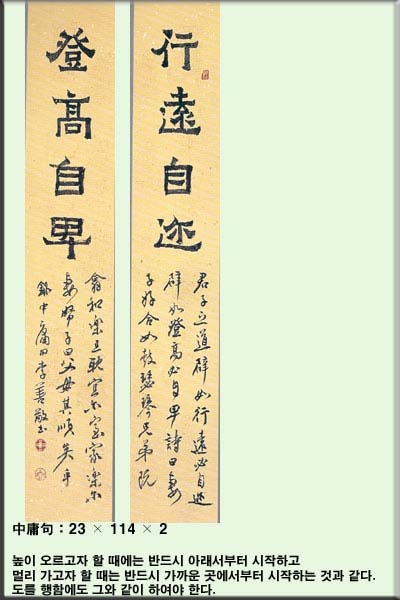 行遠自迩
君子之道辟如行遠必自迩
辟如登高必自卑詩曰妻
子好合如鼓瑟琴兄弟既
登高自卑
翕和樂且耽宜尔室家樂尔
妻帑子曰父母其順矣乎
錄中庸句李善敬书
中庸句 : 23 × 114 × 2
높이 오르고자 할 때에는 반드시 아래서부터 시작하고
멀리 가고자 할 때는 반드시 가까운 곳에서부터 시작하는 것과 같다.
도를 행함에도 그와 같이 하여야 한다.